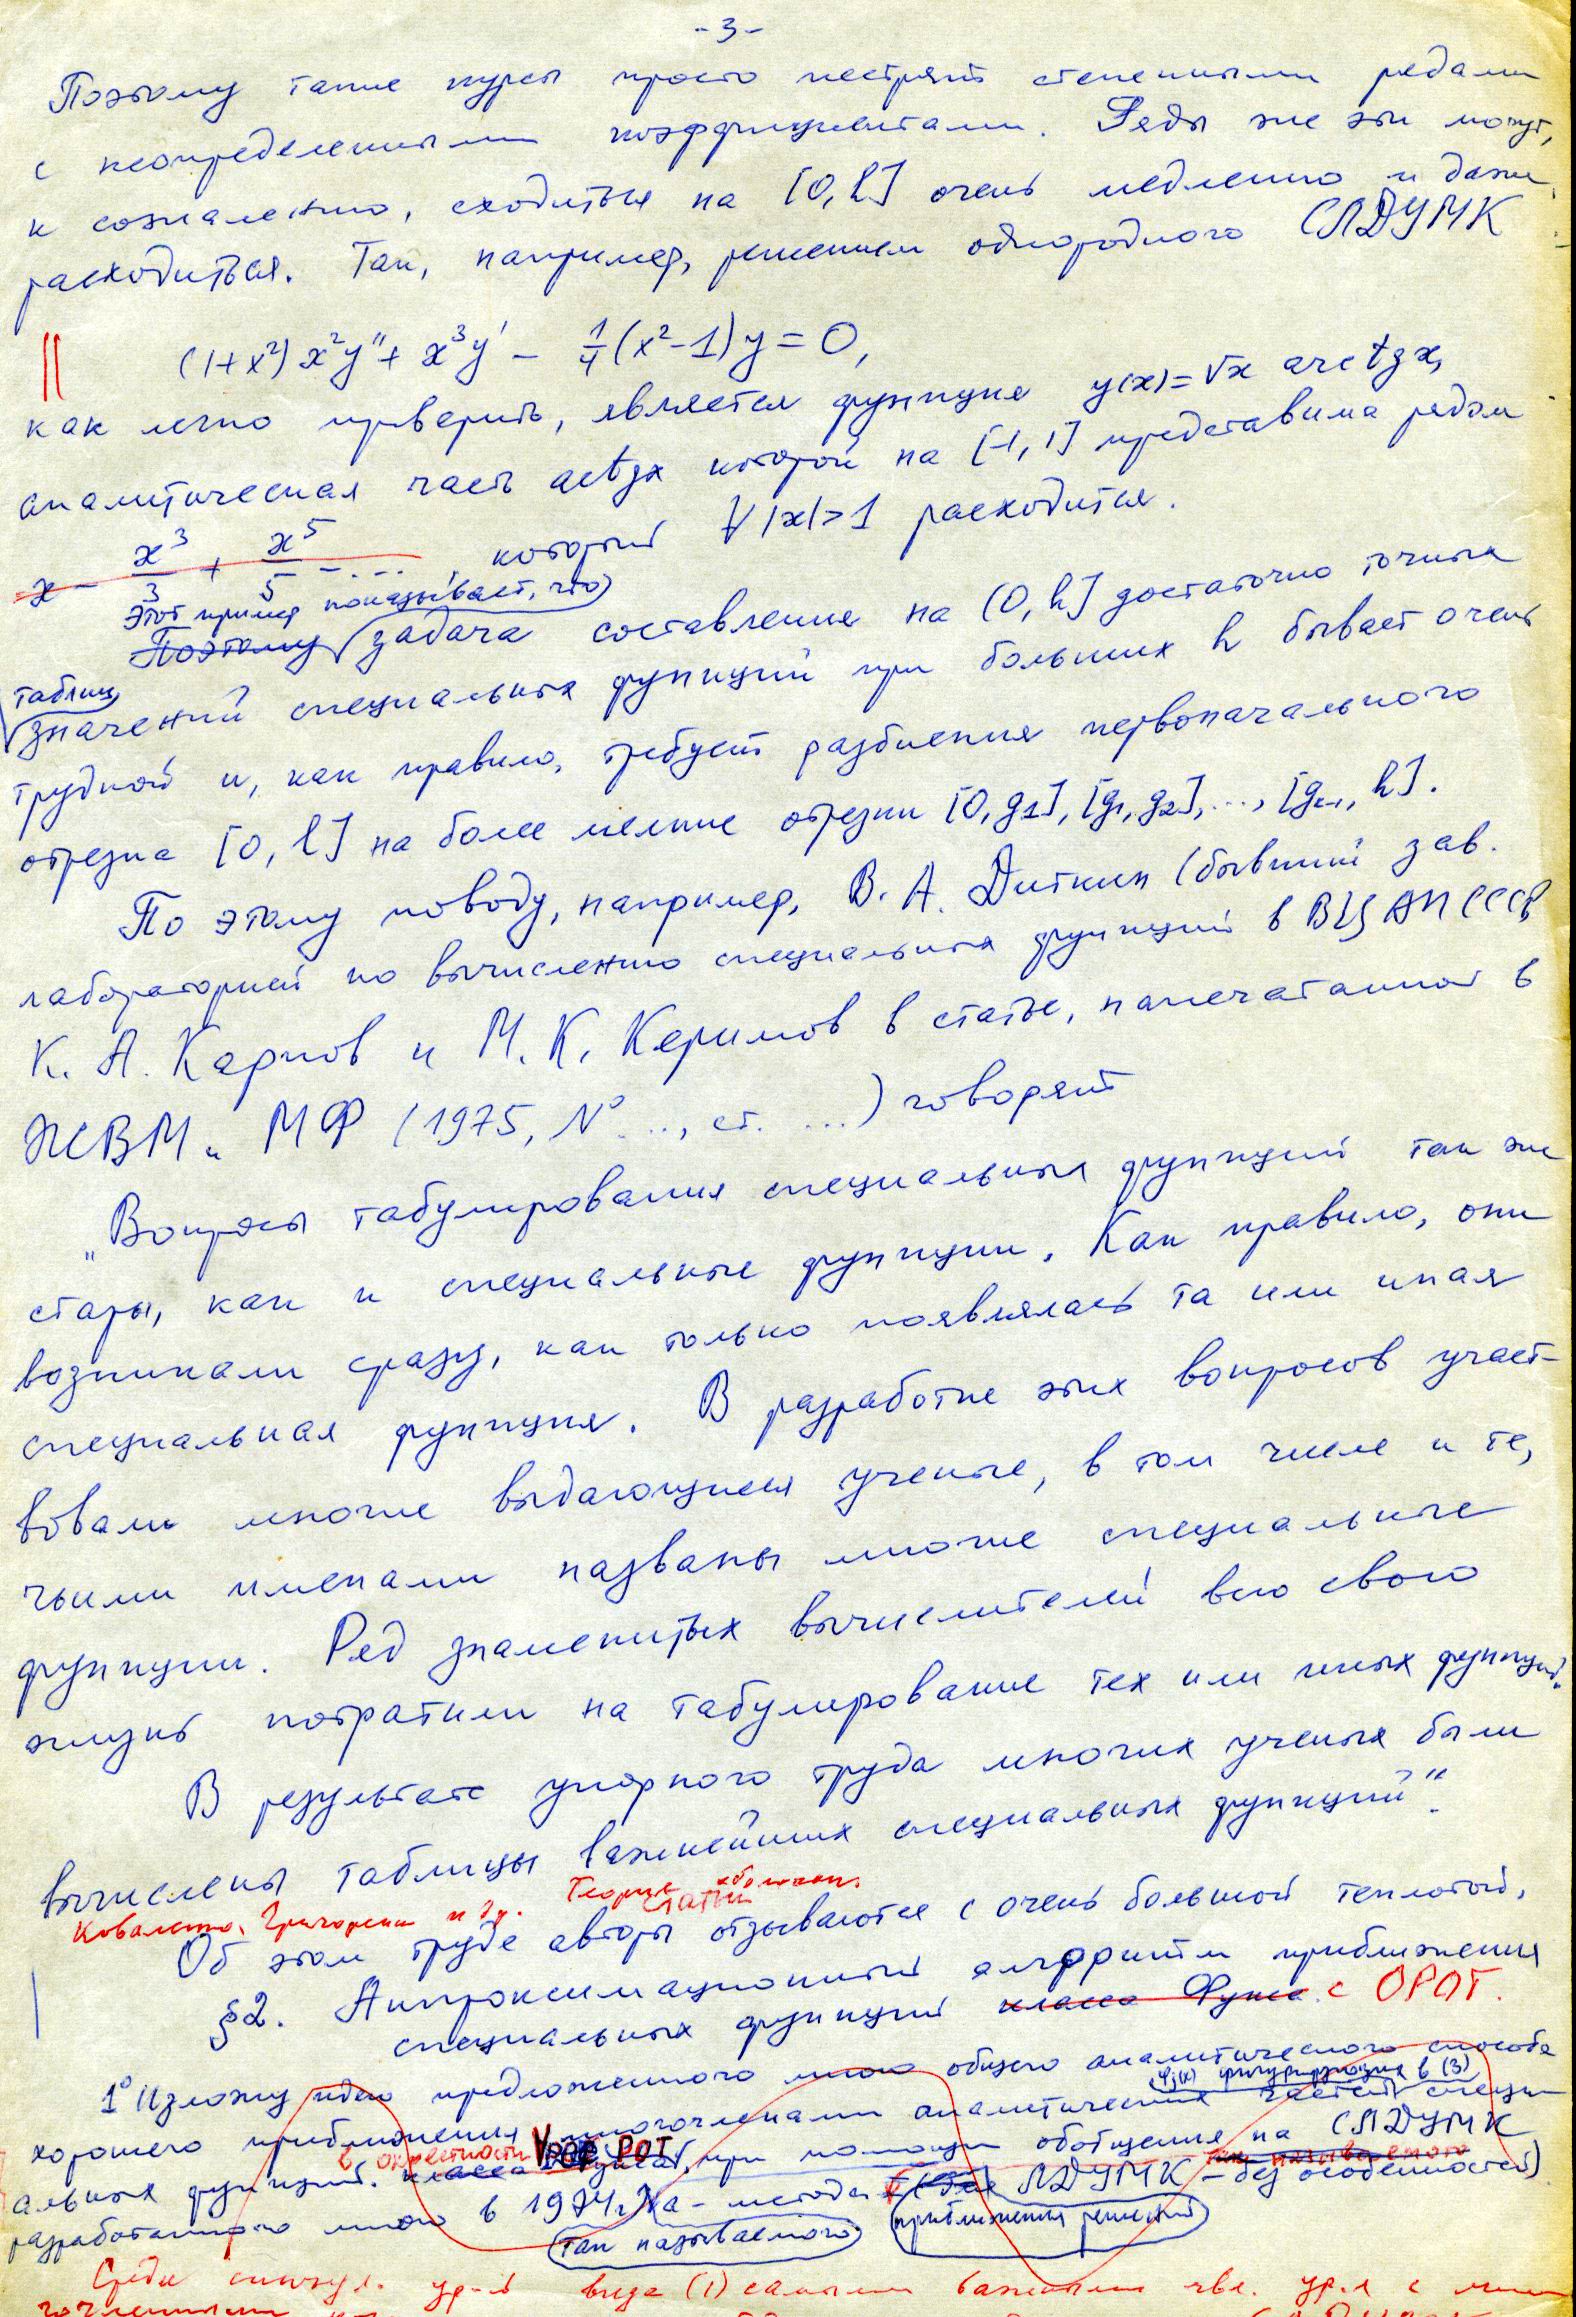 -3-
Поэтому такие курсы просто пестрят степенными рядами
с неопределенными коэффициентами. Ряды же эти могут,
к сожалению, сходиться на [0,h] очень медленно и даже
расходиться. Так, например, решением однородного СЛДУМК
(1+x²)x²y''+ x³y' - 1/4(x²-1)y=0,
как легко проверить, является функция y(x)=√x arctgx,
аналитическая часть arctgx которой на [-1,1] представима рядом
x - x³/3 + x⁵/5 - ... , который ∀|x|>1 расходится.
Этот пример показывает, что
Поэтому задача составления на (0,h] достаточно точных
таблиц
значений специальных функций при больших h бывает очень
трудной и, как правило, требует разбиения первоначального
отрезка [0,h] на более мелкие отрезки [0,g₁],[g₁,g₂],...,[g, h].
По этому поводу, например, В. А. Диткин (бывший зав.
лабораторией по вычислению специальных функций в ВЦ АН СССР
К. А. Карпов и М. К. Керимов в статье, напечатанной в
ЖВМ и МФ (1975, N°..., ст. ...) говорят
„Вопросы табулирования специальных функций так же
стары, как и специальные функции. Как правило, они
возникали сразу, как только появлялась та или иная
специальная функция. В разработке этих вопросов участ-
вовали многие выдающиеся ученые, в том числе и те,
чьими именами названы многие специальные
функции. Ряд знаменитых вычислителей всю свою
жизнь потратили на табулирование тех или иных функций.
В результате упорного труда многих ученых были
вычислены таблицы важнейших специальных функций“.
Теория
Коваленко, Григоренко и др. статьи
Об этом труде авторы отзываются с очень большой теплотой.
§2. Аппроксимационный алгоритм приближения
специальных функций класса Фукса с ОРОТ.
1° Изложу идею предложенного мною общего аналитического способа
фигурирующих в (3)
хорошего приближения многочленами аналитических частей специ
альных функций. класса при помощи обобщения на СЛДУМК
в окрестности РОТ так называемого
разработанного мною в 1974г. а-метода ЛДУМК - без особенностей)
так называемого приближения решений
Среди сингул. ур-й вида (1) самыми важными явл. ур-я с мно
гочленными